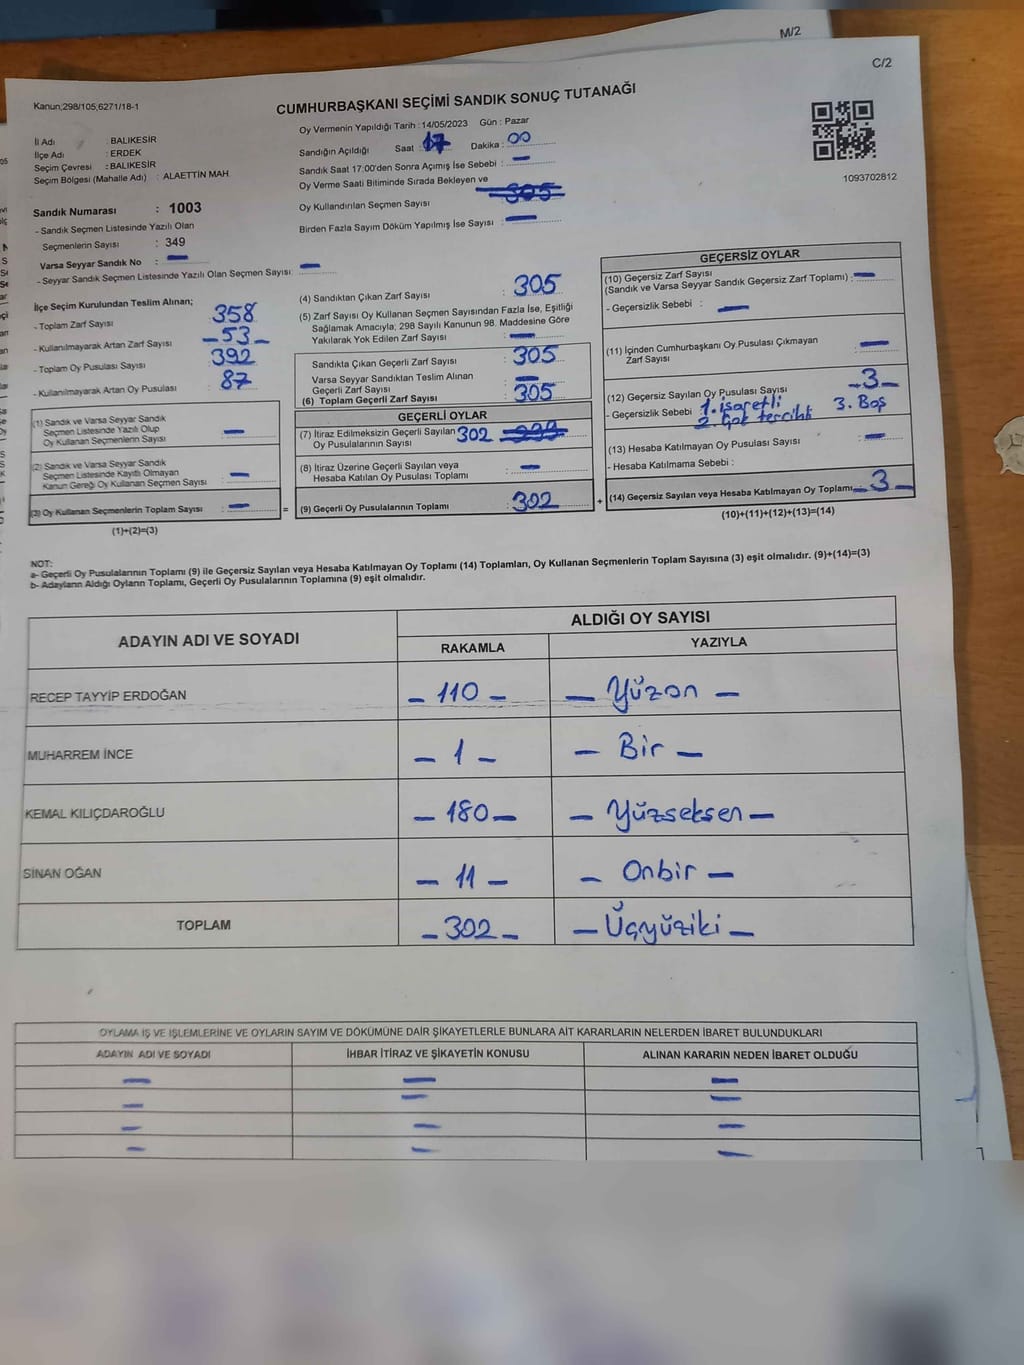 M/2
C/2
Kanun;298/105,6271/18-1
CUMHURBAŞKANI SEÇİMİ SANDIK SONUÇ TUTANAĞI
İl Adı : BALIKESİR
İlçe Adı : ERDEK
Seçim Çevresi : BALIKESİR
Seçim Bölgesi (Mahalle Adı) : ALAETTİN MAH.
Sandık Numarası : 1003
- Sandık Seçmen Listesinde Yazılı Olan
Seçmenlerin Sayısı : 349
Varsa Seyyar Sandık No : —
- Seyyar Sandık Seçmen Listesinde Yazılı Olan Seçmen Sayısı: —
Oy Vermenin Yapıldığı Tarih : 14/05/2023 Gün : Pazar
Sandığın Açıldığı Saat : 17 Dakika : 00
Sandık Saat 17:00'den Sonra Açımış İse Sebebi : —
Oy Verme Saati Bitiminde Sırada Bekleyen ve
Oy Kullandırılan Seçmen Sayısı 305
Birden Fazla Sayım Döküm Yapılmış İse Sayısı : —
1093702812
İlçe Seçim Kurulundan Teslim Alınan;
- Toplam Zarf Sayısı : 358
- Kullanılmayarak Artan Zarf Sayısı : -53-
- Toplam Oy Pusulası Sayısı : 392
- Kullanılmayarak Artan Oy Pusulası : 87
(1) Sandık ve Varsa Seyyar Sandık
Seçmen Listesinde Yazılı Olup
Oy Kullanan Seçmenlerin Sayısı : —
(2) Sandık ve Varsa Seyyar Sandık
Seçmen Listesinde Kayıtlı Olmayan
Kanun Gereği Oy Kullanan Seçmen Sayısı : —
(3) Oy Kullanan Seçmenlerin Toplam Sayısı : —
(1)+(2)=(3)
=
(4) Sandıktan Çıkan Zarf Sayısı : 305
(5) Zarf Sayısı Oy Kullanan Seçmen Sayısından Fazla İse, Eşitliği
Sağlamak Amacıyla; 298 Sayılı Kanunun 98. Maddesine Göre
Yakılarak Yok Edilen Zarf Sayısı : —
Sandıkta Çıkan Geçerli Zarf Sayısı : 305
Varsa Seyyar Sandıktan Teslim Alınan
Geçerli Zarf Sayısı : —
(6) Toplam Geçerli Zarf Sayısı : 305
GEÇERLİ OYLAR
(7) İtiraz Edilmeksizin Geçerli Sayılan 302
Oy Pusulalarının Sayısı
(8) İtiraz Üzerine Geçerli Sayılan veya
Hesaba Katılan Oy Pusulası Toplamı : —
(9) Geçerli Oy Pusulalarının Toplamı : 302
+
GEÇERSİZ OYLAR
(10) Geçersiz Zarf Sayısı
(Sandık ve Varsa Seyyar Sandık Geçersiz Zarf Toplamı) : —
- Geçersizlik Sebebi : —
(11) İçinden Cumhurbaşkanı Oy Pusulası Çıkmayan
Zarf Sayısı : —
(12) Geçersiz Sayılan Oy Pusulası Sayısı : -3-
- Geçersizlik Sebebi : 1. işaretli 3. Boş
2. Çot tercihli
(13) Hesaba Katılmayan Oy Pusulası Sayısı : —
- Hesaba Katılmama Sebebi :
(14) Geçersiz Sayılan veya Hesaba Katılmayan Oy Toplamı: -3-
(10)+(11)+(12)+(13)=(14)
NOT:
a- Geçerli Oy Pusulalarının Toplamı (9) ile Geçersiz Sayılan veya Hesaba Katılmayan Oy Toplamı (14) Toplamları, Oy Kullanan Seçmenlerin Toplam Sayısına (3) eşit olmalıdır. (9)+(14)=(3)
b- Adayların Aldığı Oyların Toplamı, Geçerli Oy Pusulalarının Toplamına (9) eşit olmalıdır.
ADAYIN ADI VE SOYADI
ALDIĞI OY SAYISI
RAKAMLA YAZIYLA
RECEP TAYYİP ERDOĞAN - 110 - - Yüzon -
MUHARREM İNCE - 1 - - Bir -
KEMAL KILIÇDAROĞLU - 180 - - Yüzseksen -
SİNAN OĞAN - 11 - - Onbir -
TOPLAM - 302 - - Üçyüziki -
OYLAMA İŞ VE İŞLEMLERİNE VE OYLARIN SAYIM VE DÖKÜMÜNE DAİR ŞİKAYETLERLE BUNLARA AİT KARARLARIN NELERDEN İBARET BULUNDUKLARI
ADAYIN ADI VE SOYADI İHBAR İTİRAZ VE ŞİKAYETİN KONUSU ALINAN KARARIN NEDEN İBARET OLDUĞU
— — —
— — —
— — —
— — —